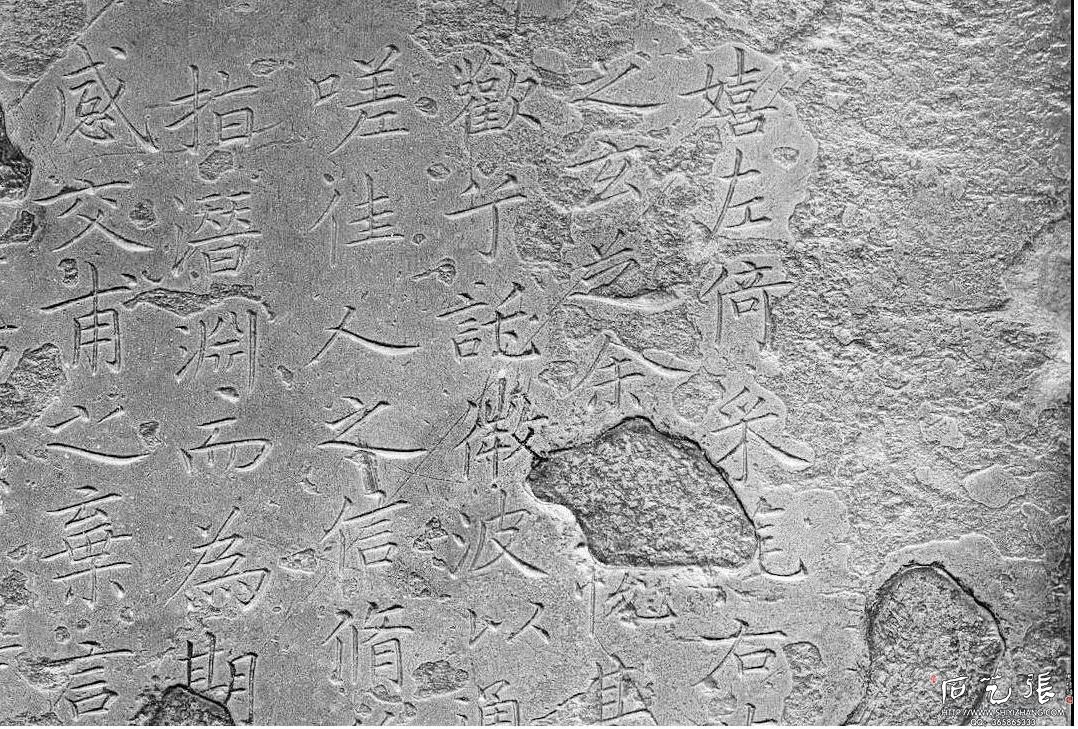 嬉左倚采旄右
之玄芝余其
歡兮託微波以通
嗟佳人之信脩
指潛淵而為期
感交甫之棄言
HTTP://WWW.SHIYIZHANG.COM
QQ: 365865333